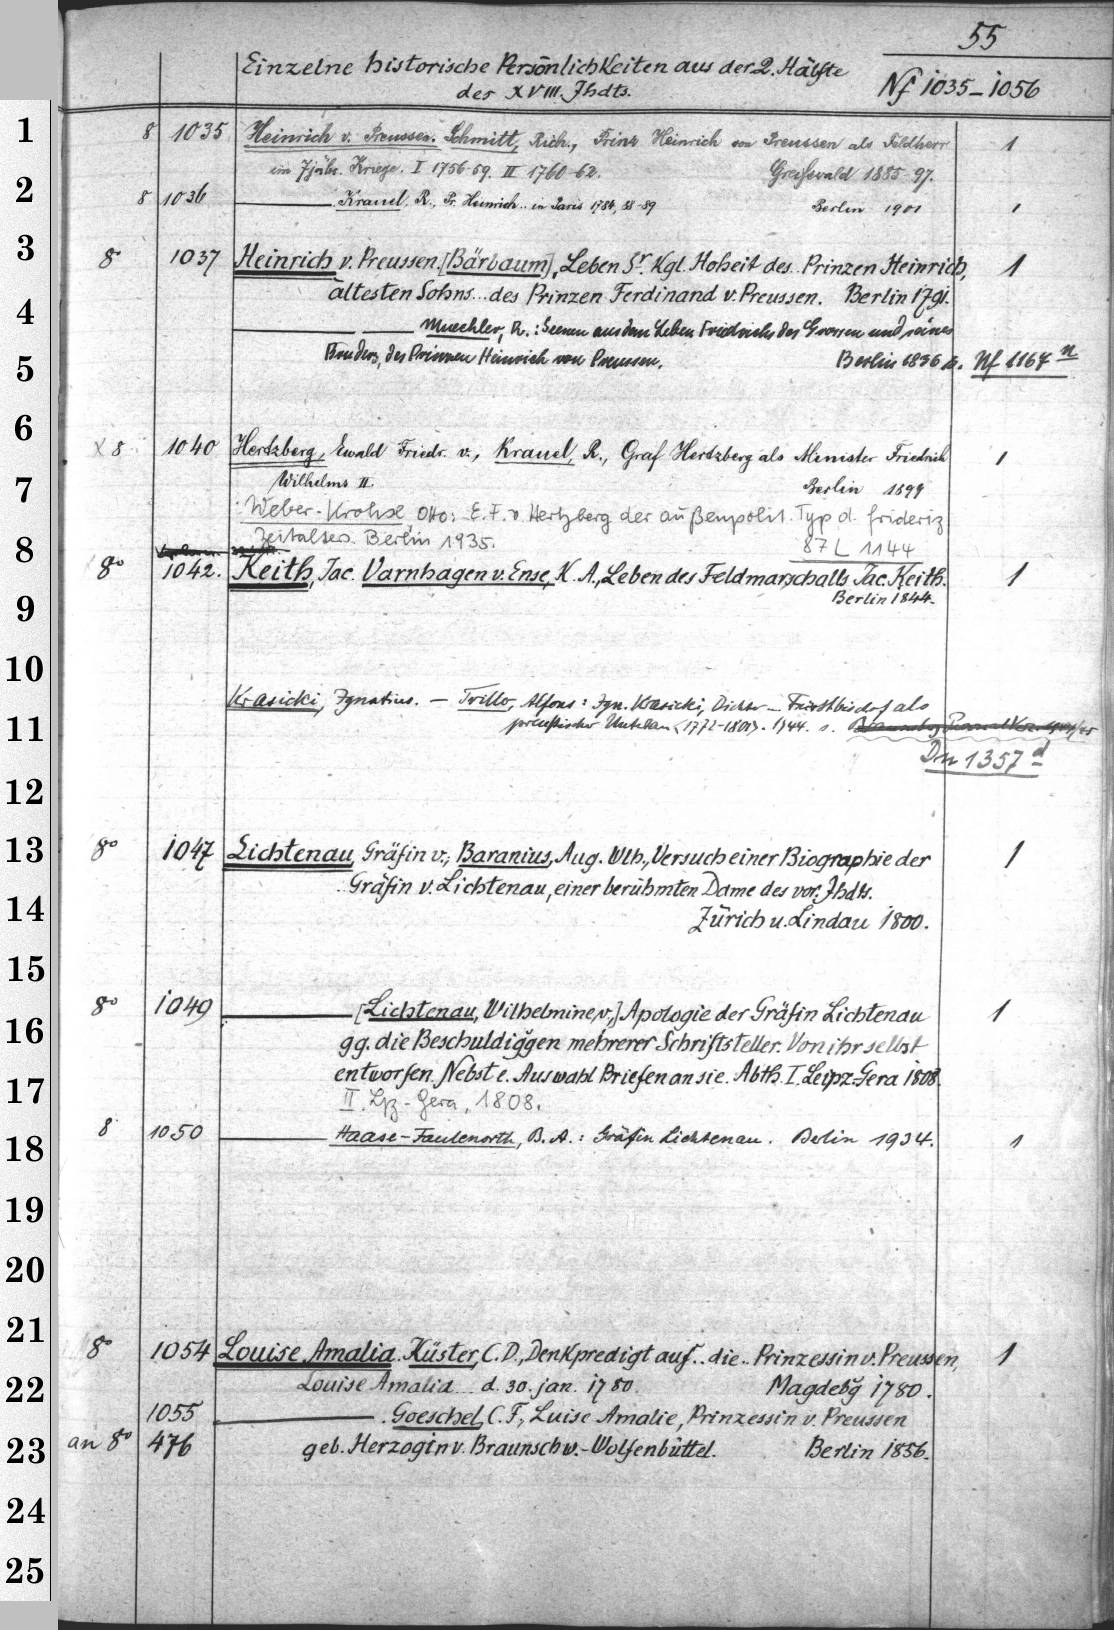 55
Einzelne historische Persönlichkeiten aus der 2. Hälfte
des XVIII. Jhdts.
Nf 1035–1056
1
8 1035 Heinrich v. Preussen. Schmitt, Rich., Prinz Heinrich von Preussen als Feldherr 1
im 7jähr. Kriege. I 1756-59. II 1760-62. Greifswald 1885-97.
2
8 1036 ——— Krauel, R., Pr. Heinrich.. in Paris 1784, 88-89 Berlin 1901 1
3
8° 1037 Heinrich v. Preussen. [Bärbaum], Leben Sr. Kgl. Hoheit des.. Prinzen Heinrich, 1
ältesten Sohns... des Prinzen Ferdinand v. Preussen. Berlin 1791.
4
——— —— Muechler, K.: Scenen aus dem Leben Friedrichs des Grossen und seines
5
Bruders, des Prinzen Heinrich von Preussen. Berlin 1836 s. Nf 1167 n
6
x 8 1040 Hertzberg, Ewald Friedr. v., Krauel, R., Graf Hertzberg als Minister Friedrich 1
7
Wilhelms II. Berlin 1899
Weber-Krohse, Otto: E. F. v. Hertzberg der außenpolit. Typ d. frideriz
8
Zeitalters. Berlin 1935. 87 L 1144
8° 1042. Keith, Jac. Varnhagen v. Ense, K. A., Leben des Feldmarschalls Jac. Keith. 1
9
Berlin 1844.
10
Krasicki, Ignatius. — Trillo, Alfons: Ign. Krasicki, Dichter – Fürstbischof als
11
preußischer Untertan <1772-1801>. 1944. s.
Dn 1357 d
12
13
8° 1047 Lichtenau, Gräfin v., Baranius, Aug. Wlh., Versuch einer Biographie der 1
14
Gräfin v. Lichtenau, einer berühmten Dame des vor. Jhdts.
Zürich u. Lindau 1800.
15
8° 1049 ——— [Lichtenau, Wilhelmine, v.,] Apologie der Gräfin Lichtenau 1
16
gg. die Beschuldiggen mehrerer Schriftsteller. Von ihr selbst
17
entworfen. Nebst e. Auswahl Briefen an sie. Abth. I. Leipz. Gera 1808.
II. Lpz.-Gera, 1808.
18
8 1050 ——— Haase-Faulenorth, B. A.: Gräfin Lichtenau. Berlin 1934. 1
19
20
21
8° 1054 Louise Amalia. Küster, C. D., Denkpredigt auf.. die.. Prinzessin v. Preussen, 1
22
Louise Amalia... d. 30. jan. 1780. Magdebg 1780.
1055 ——— . Goeschel, C. F., Luise Amalie, Prinzessin v. Preussen
23
an 8° 476 geb. Herzogin v. Braunschw.-Wolfenbüttel. Berlin 1856.
24
25